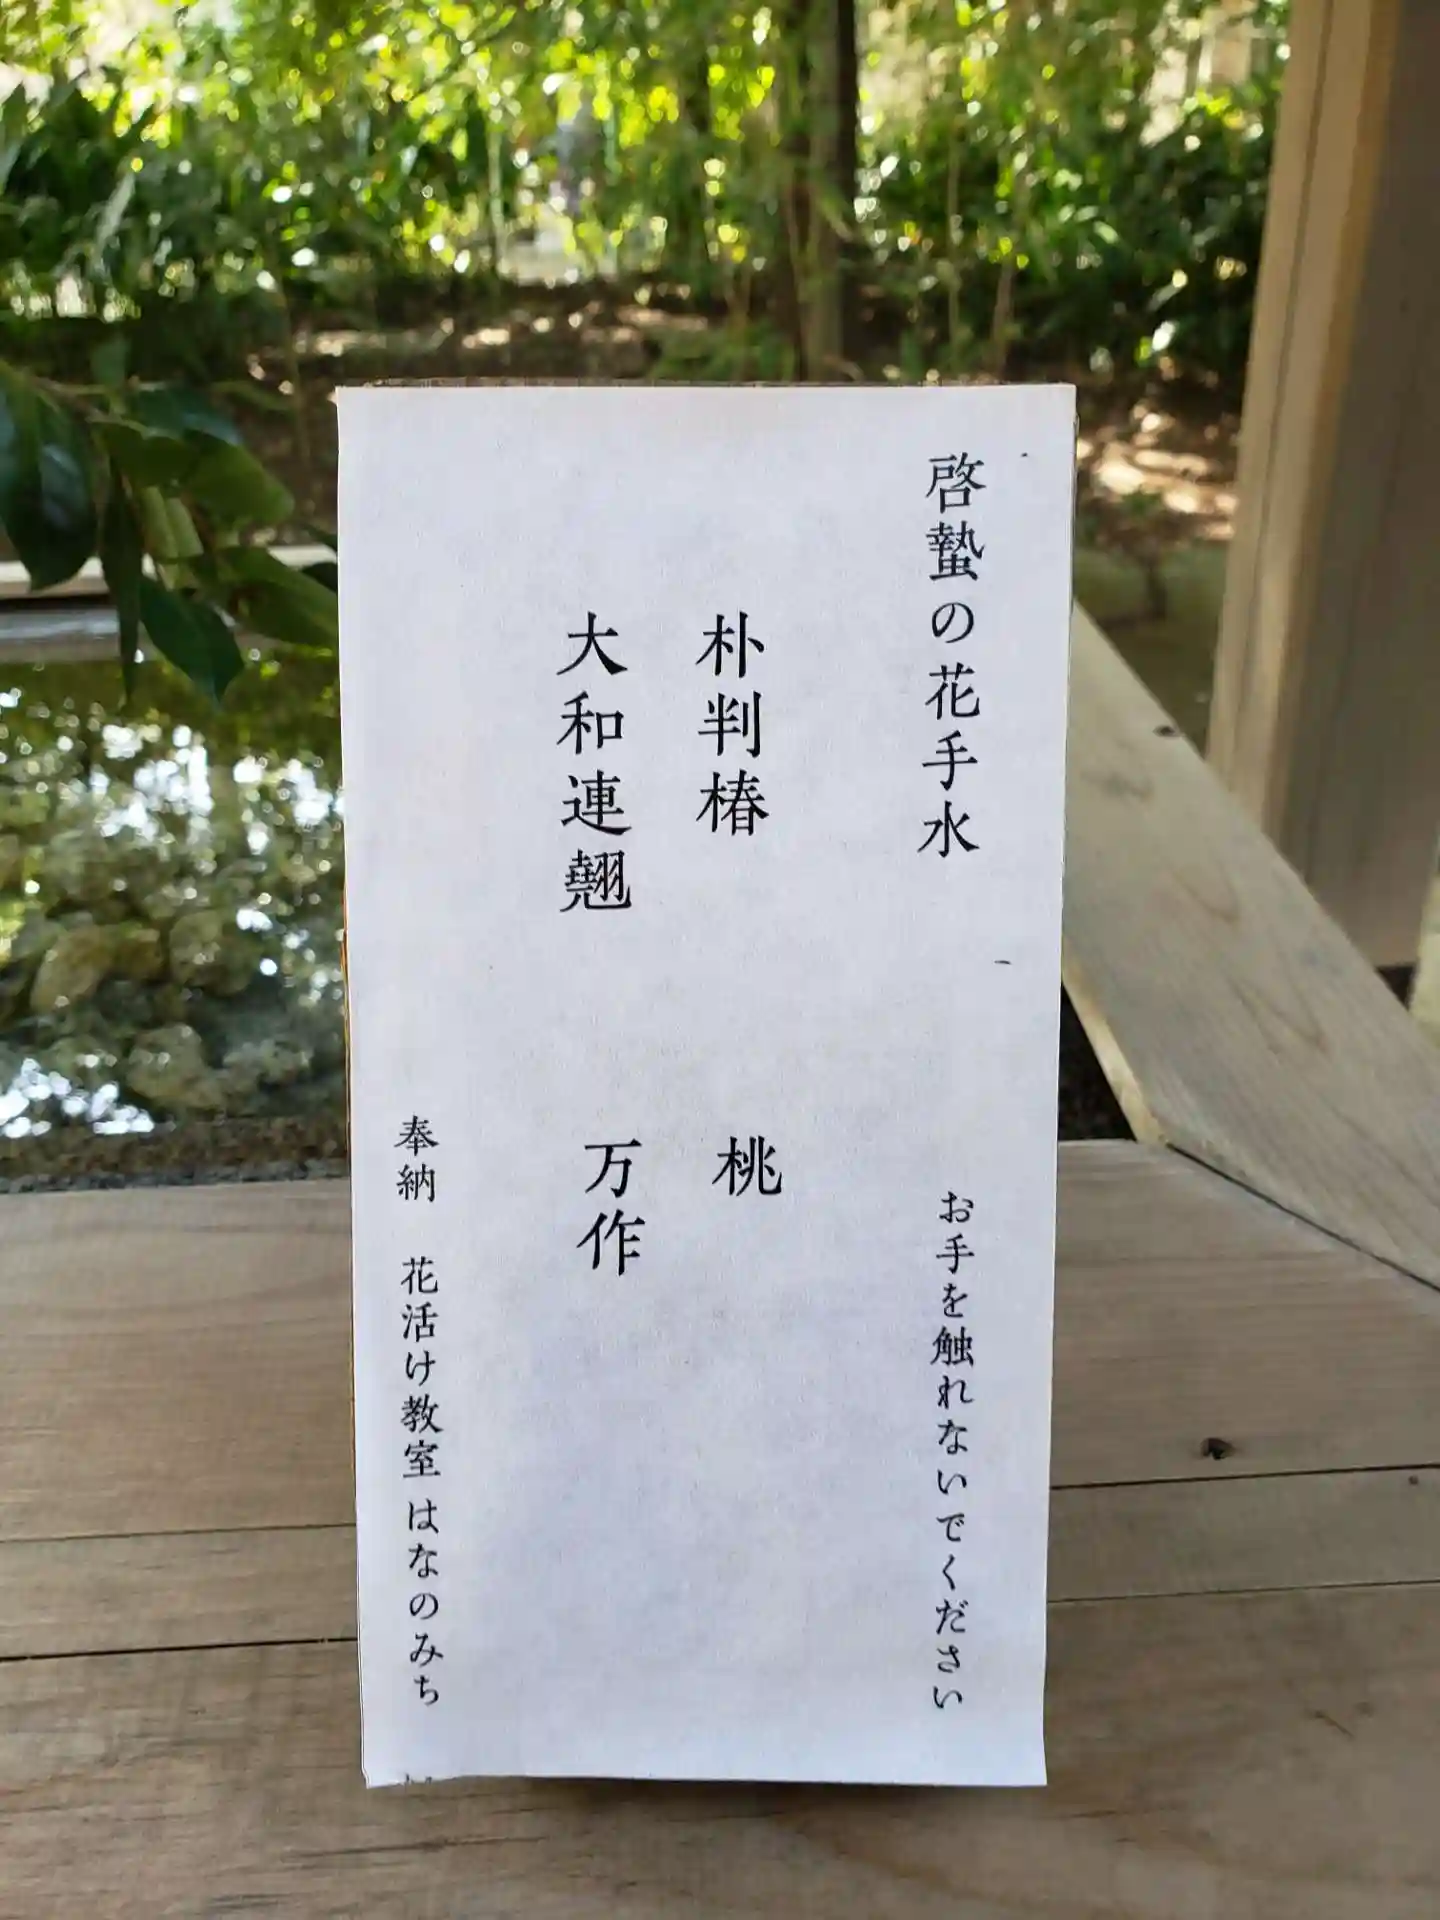 啓蟄の花手水 お手を触れないでください
朴判椿 桃
大和連翹 万作
奉納 花活け教室 はなのみち